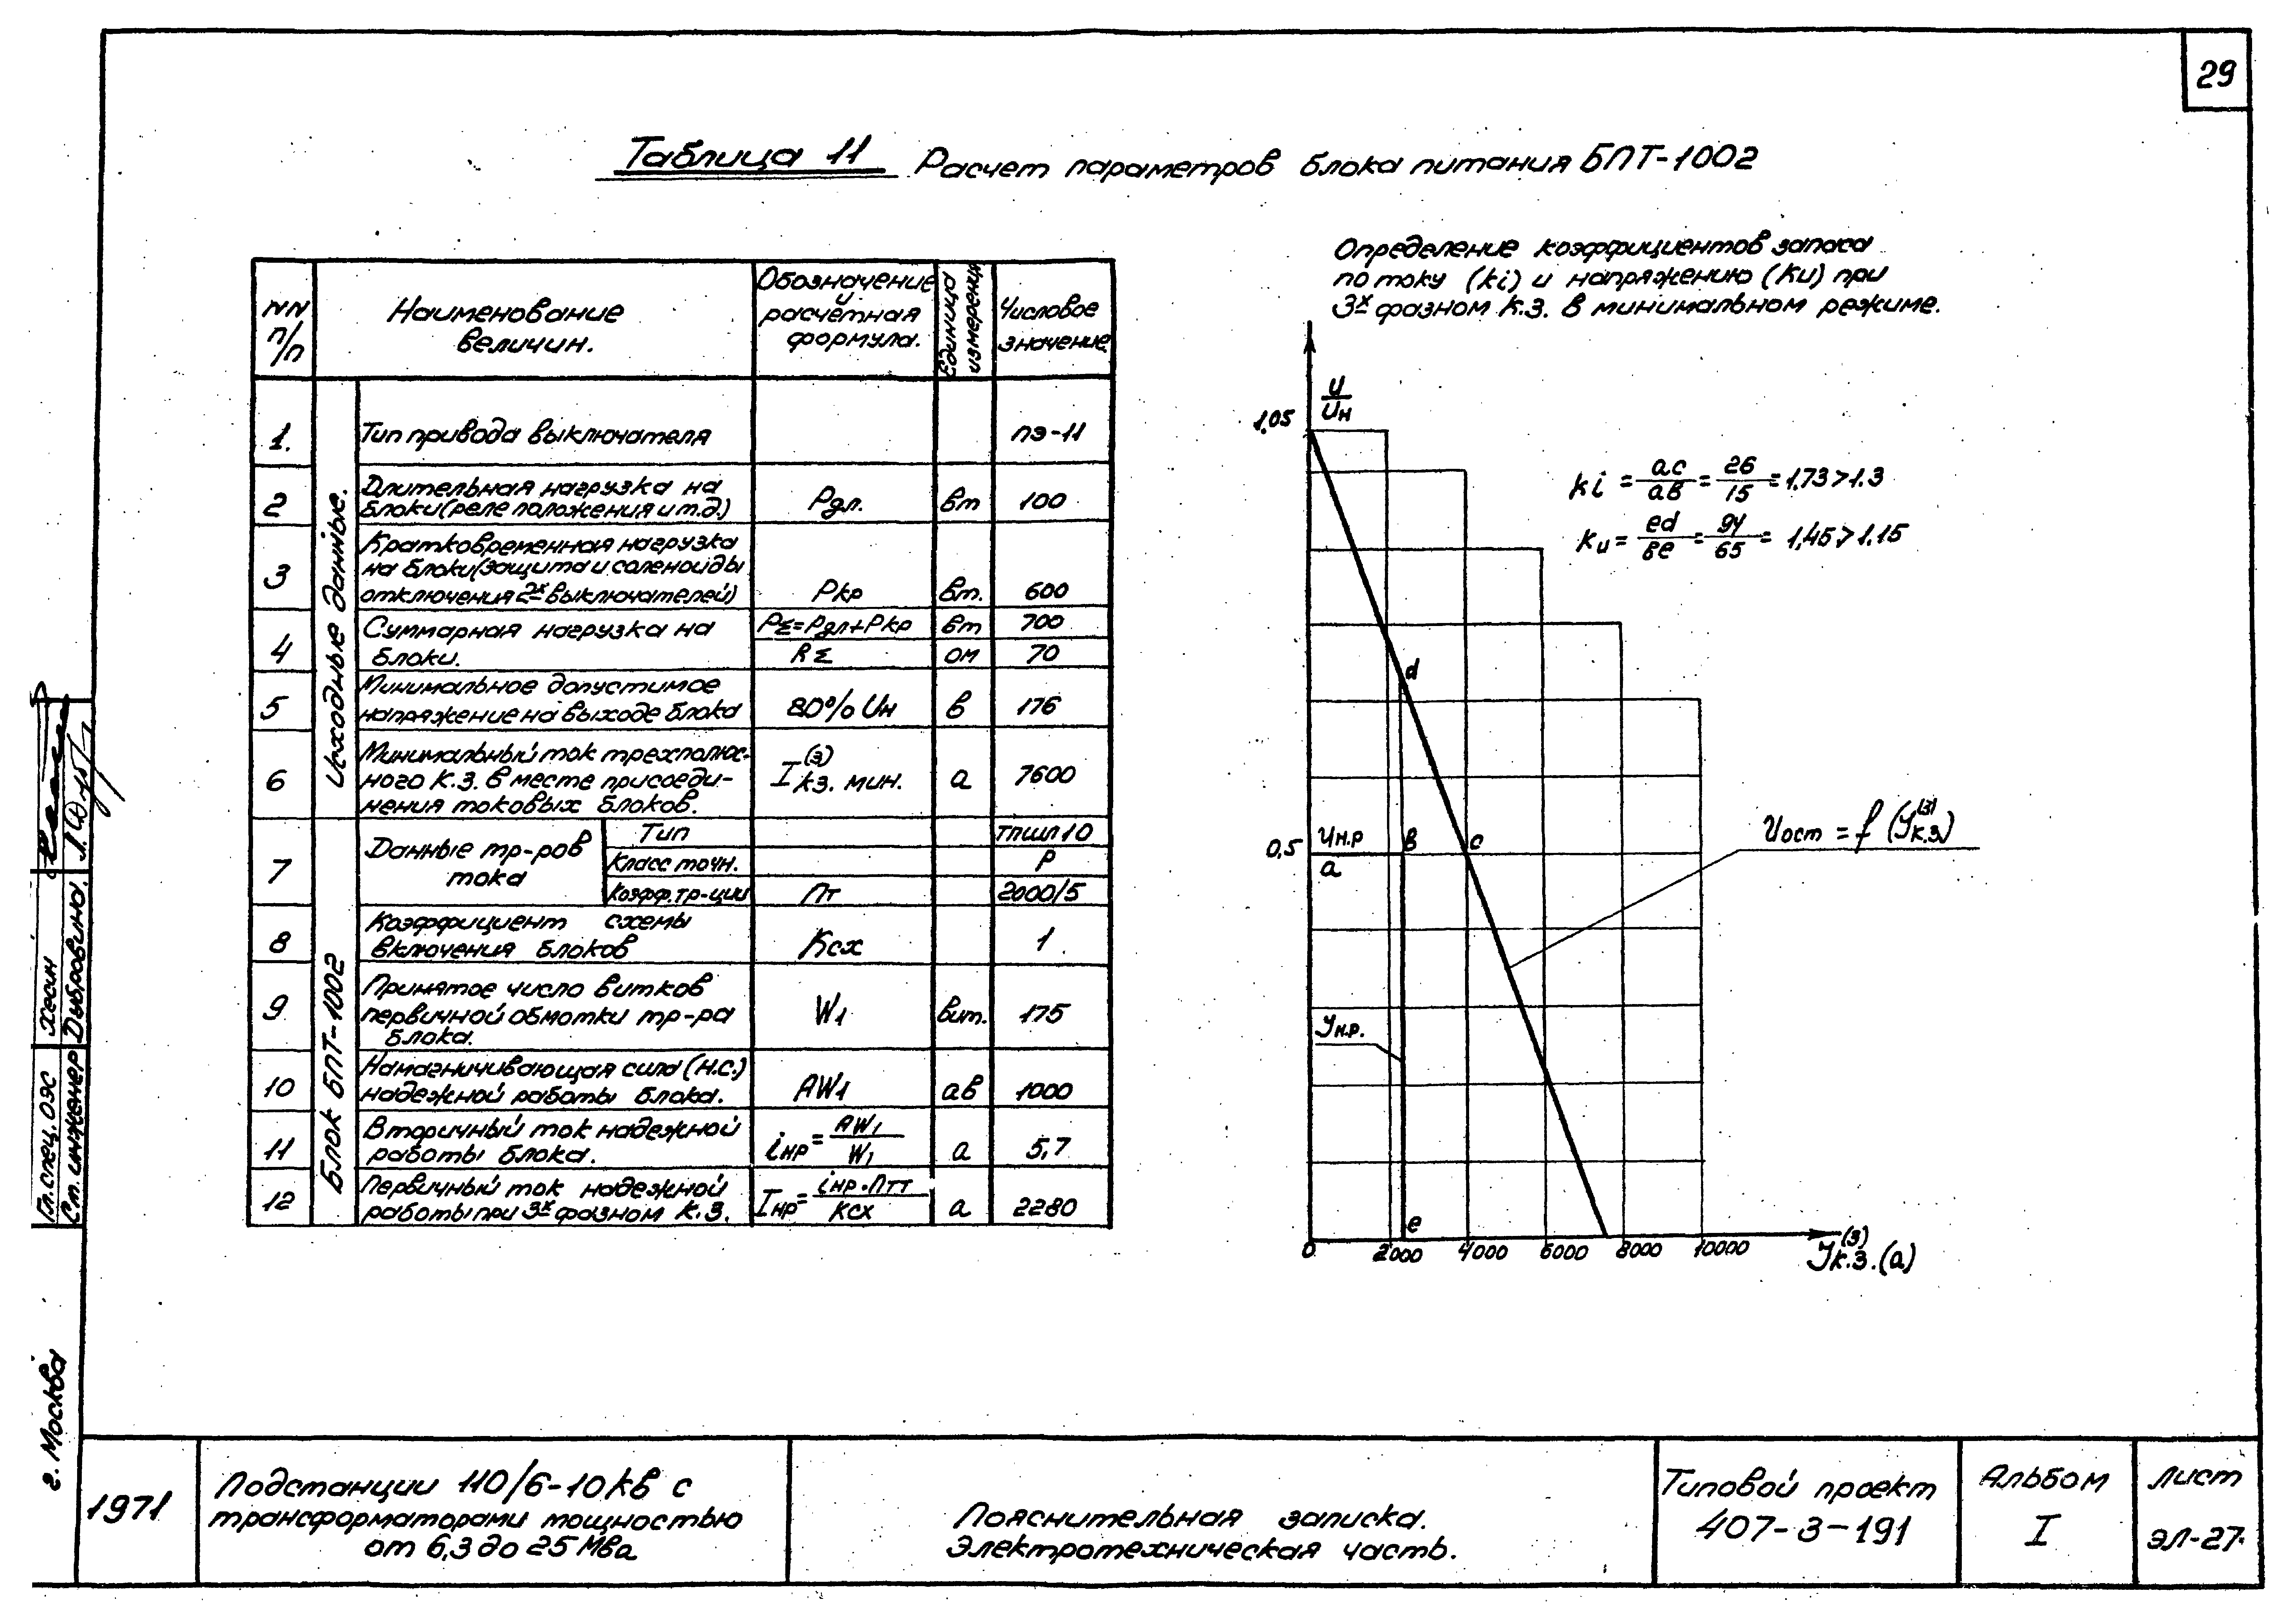 29
Таблица 11 Расчет параметров блока питания БПТ-1002
NN п/п
Наименование величин.
Обозначение и расчетная формула.
Единица измерения
Числовое значение
Исходные данные.
1. Тип привода выключателя ПЭ-11
2 Длительная нагрузка на блоки (реле положения и т.д.) Рдл. вт 100
3 Кратковременная нагрузка на блоки (защита и соленоиды отключения 2х выключателей) Ркр вт. 600
4 Суммарная нагрузка на блоки. РΣ=Рдл+Ркр вт 700
RΣ ом 70
5 Минимальное допустимое напряжение на выходе блока 80% Uн в 176
6 Минимальный ток трехполюсного к.з. в месте присоединения токовых блоков. I(3) кз. мин. а 7600
Блок БПТ-1002
7 Данные тр-ров тока Тип ТПШЛ10
Класс точн. Р
Коэфф.тр-ции Пт 2000/5
8 Коэффициент схемы включения блоков Ксх 1
9 Принятое число витков первичной обмотки тр-ра блока. W1 вит. 175
10 Намагничивающая сила (н.с.) надежной работы блока. AW1 ав 1000
11 Вторичный ток надежной работы блока. iнр= AW1/W1 а 5,7
12 Первичный ток надежной работы при 3х фазном к.з. Iнр= iнр·Птт/Ксх а 2280
Определение коэффициентов запаса
по току (ki) и напряжению (Ku) при
3х фазном к.з. в минимальном режиме.
U/Uн
1,05
ki = ac/aв = 26/15 = 1,73>1.3
Ku = ed/вe = 94/65 = 1,45>1.15
d
Uн.р
в
c
0,5
a
Uост = f (Iк.з(3))
Iн.р.
e
0 2000 4000 6000 8000 10000
I(3)к.з.(а)
Гл.спец.ОЭС Хесин
Ст.инженер Дибровина.
г. Москва
1971
Подстанции 110/6-10кв с
трансформаторами мощностью
от 6,3 до 25 Мва
Пояснительная записка.
Электротехническая часть.
Типовой проект
407-3-191
Альбом
I
Лист
ЭЛ-27